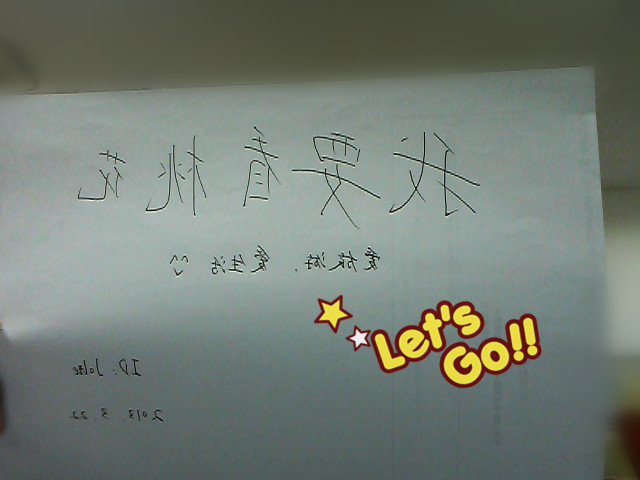 我要看桃花
爱旅游，爱生活
Let's Go!!
ID: Jolse
2013.3.22